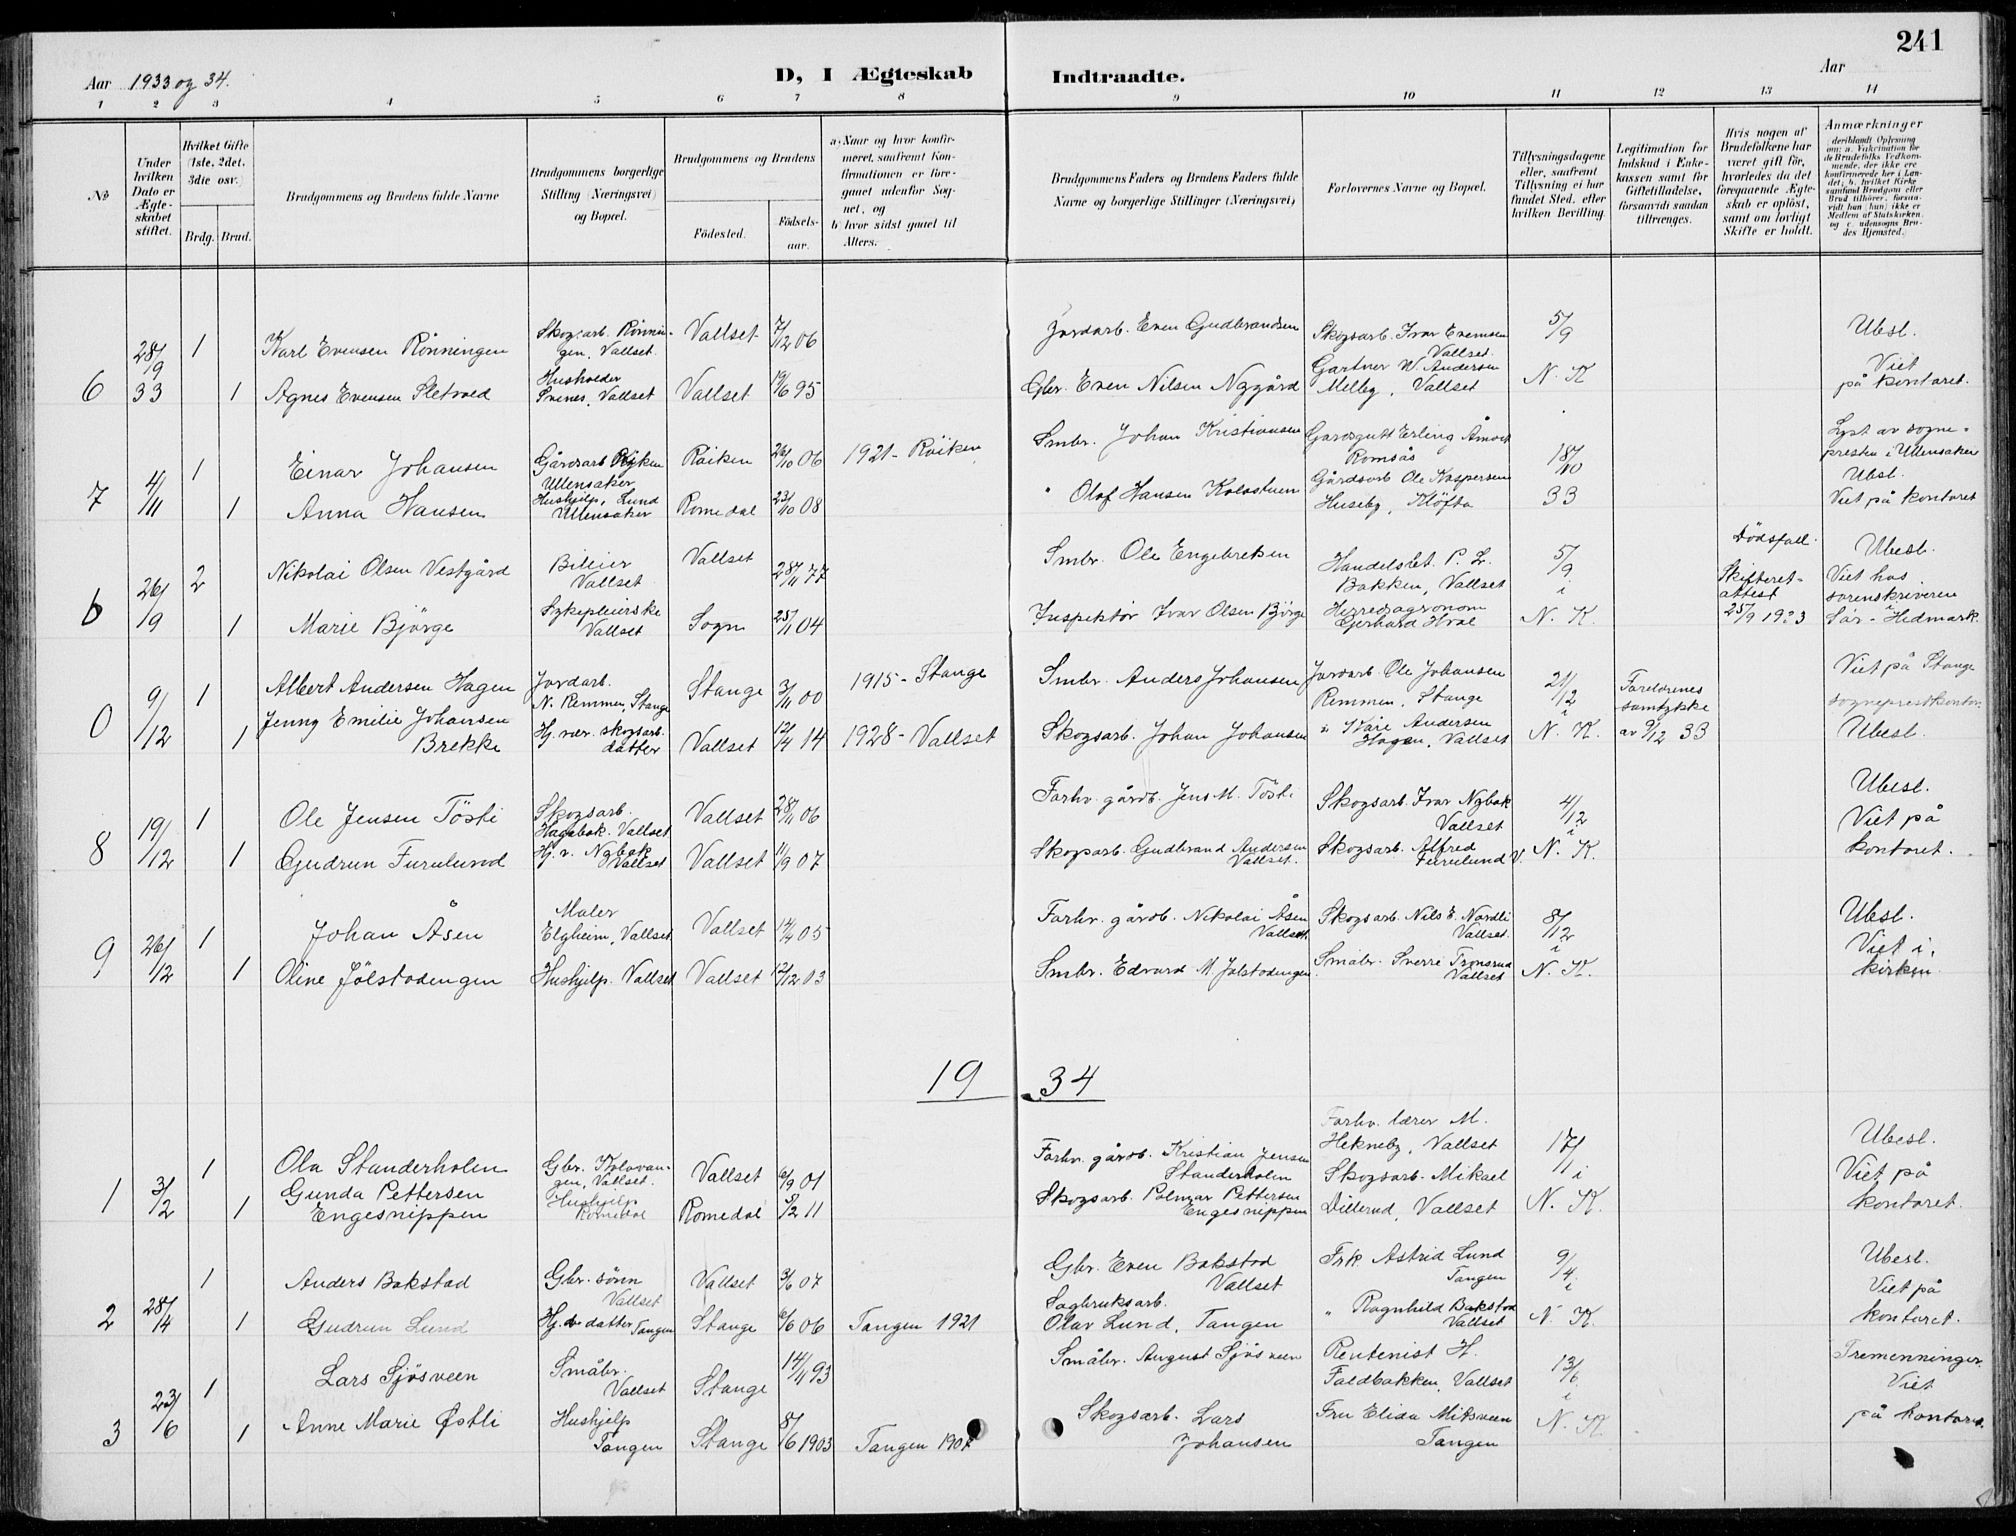 241
Aar 1933 og 34.
D, I Ægteskab Indtraadte.
Aar
1 2 3 4 5 6 7 8 9 10 11 12 13 14
No
Under hvilken Dato er Ægteskabet stiftet.
Hvilket Gifte (1ste, 2det, 3die osv.)
Brdg. Brud.
Brudgommens og Brudens fulde Navne
Brudgommens borgerlige Stilling (Næringsvei) og Bopæl.
Brudgommens og Brudens
Fødested.
Fødselsaar.
a. Naar og hvor konfirmeret, saafremt Konfirmationen er foregaaet udenfor Sognet, og
b. hvor sidst gaaet til Alters.
Brudgommens Faders og Brudens Faders fulde Navne og borgerlige Stillinger (Næringsvei)
Forlovernes Navne og Bopæl.
Tillysningsdagene eller, saafremt Tillysning ei har fundet Sted, efter hvilken Bevilling.
Legitimation for Indskud i Enkekassen samt for Giftetilladelse, forsaavidt saadan tiltrænges.
Hvis nogen af Brudefolkene har været gift før, hvorledes da det foregaaende Ægteskab er opløst, samt om lovligt Skifte er holdt.
Anmærkninger
deriblandt Oplysning om: a. Vakcination for de Brudefolks Vedkommende, der ikke ere konfirmerede her i Landet; b. hvilket Kirkesamfund Brudgom eller Brud tilhører, forsaavidt han (hun) ikke er Medlem af Statskirken, og c. udensogns Brudes Hjemsted.
6 28/9 33 1 Karl Evensen Rønningen Skog.arb. Rønningen, Vallset. Vallset 7/12 06 Jordarb. Even Gudbrandsen Skogsarb. Ivar Evensen Vallset. 5/9 Ubesl.
1 Agnes Evensen Sletvold Husholder Svenes, Vallset Vallset 19/6 95 Gbr. Even Nilsen Nygård Gartner W. Andersen Melby, Vallset N. K Viet på kontoret.
7 4/11 1 Einar Johansen Gårdsarb Ullensaker Røiken 26/10 06 1921 - Røiken Smbr. Johan Kristiansen Gardsgutt Erling Åmodt Romsås 18/10 Lyst av sognepresten i Ullensaker
1 Anna Hansen Hushjelp, Lund Ullensaker Romedal 23/10 08 " Olaf Hansen Kolostuen Gårdsarb Ole Kaspersen Huseby, Kløfta 33 Ubesl. Viet på kontoret
6 26/9 2 Nikolai Olsen Vestgård Bileier Vallset. Vallset 28/11 77 Smbr. Ole Engebretsen Handelsbet. P. L. Bakken, Vallset 5/9 i Dødsfall. Ubesl.
1 Marie Bjørge Sykepleierske Vallset Sogn 25/11 04 Inspektør Ivar Olsen Bjørge Herredsagronom Gjerhard Hval N. K. Skifteret-attest 25/9 1933 Viet hos sorenskriveren i Sør-Hedmark.
0 9/12 1 Albert Andersen Hagen Jordarb. N. Remmen, Stange Stange 3/11 00 1915 - Stange Smbr. Anders Johansen Jordarb. Ole Johansen Remmen, Stange 21/12 i Foreldrenes samtykke av 9/12 33 Viet på Stange sogneprestkontor.
1 Jenny Emilie Johansen Brekke Hj. vær. skogsarb. datter Vallset 12/4 14 1928 - Vallset Skogsarb. Johan Johansen Kåre Andersen Hagen, Vallset N. K. Ubesl.
8 19/12 1 Ole Jensen Tøsti Skogsarb. Hagabak. Vallset Vallset 28/11 06 Forhv. gårdb. Jens M. Tøsti Skogsarb. Ivar Nybak Vallset 4/12 i Ubesl.
1 Gudrun Furulund Hj. v. Nybak Vallset Vallset 11/9 07 Skogsarb. Gudbrand Andersen Vallset. Skogsarb. Alfred Furulund V. N. K. Viet på kontoret.
9 26/12 1 Johan Åsen Maler Elgheim, Vallset Vallset 14/4 05 Forhv. gårdb. Nikolai Åsen Vallset Skogsarb. Nils E. Nordli Vallset. 8/12 i Ubesl.
1 Oline Jølstadengen Hushjelp. Vallset Vallset 12/12 03 Smbr. Edvard M. Jølstadengen Småbr. Sverre Tronsrud Vallset N. K. Viet i kirken.
19 34
1 3/2 1 Ola Standerholen Gbr. Kolovangen, Vallset. Vallset 6/9 01 Forhv. gårdb. Kristian Jensen Standerholen Forhv. lærer M. Hekneby, Vallset 17/1 i Ubesl.
1 Gunda Pettersen Engesnippen Hushjelp Romedal Romedal 5/2 11 Skogsarb. Palmar Pettersen Engesnippen Skogsarb. Mikael Dillerud, Vallset N. K. Viet på kontoret.
2 28/4 1 Anders Bakstad Gbr. sønn Vallset Vallset 3/6 07 Gbr. Even Bakstad Vallset Frk. Astrid Lund Tangen 9/4 i Ubesl.
1 Gudrun Lund Hj. v datter Tangen Stange 6/6 06 Tangen 1921 Sagbruksarb. Olav Lund, Tangen " Ragnhild Bakstad Vallset N. K. Viet på kontoret.
3 23/6 1 Lars Sjøsveen Småbr. Vallset Stange 14/11 93 Småbr. August Sjøsveen Rentenist H. Faldbakken, Vallset 13/6 i Tremenninger.
1 Anne Marie Østli Hushjelp Tangen Stange 8/6 1903 Tangen Skogsarb. Lars Johansen Fru Elida Mitsveen Tangen N. K Viet på kontoret.